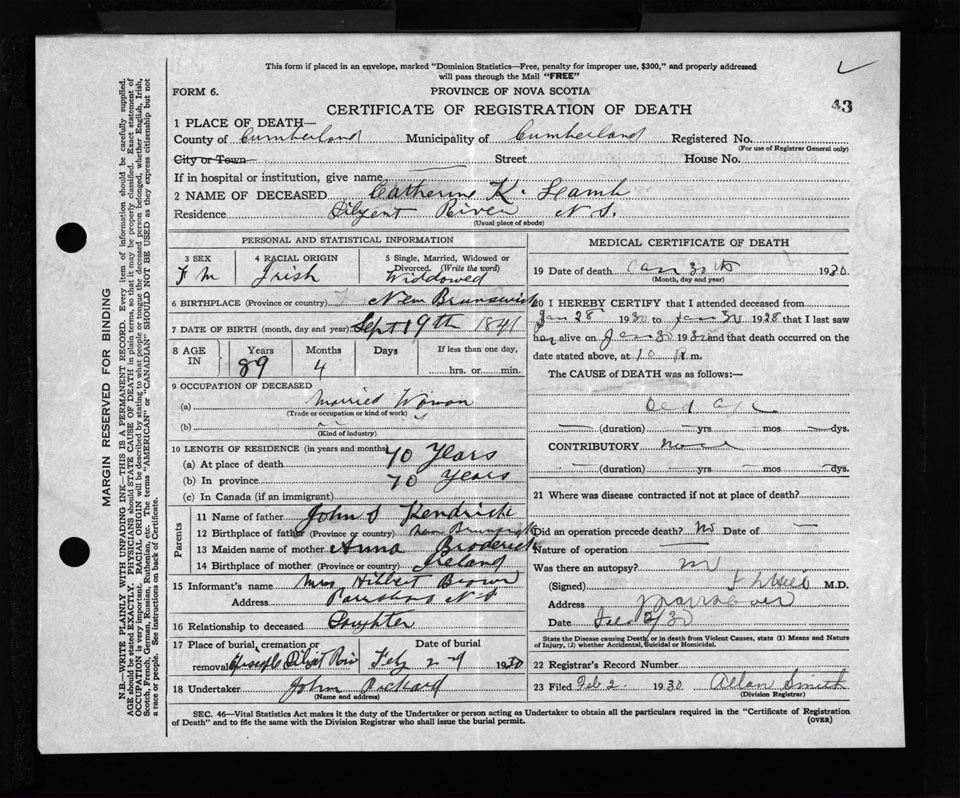 This form if placed in an envelope, marked "Dominion Statistics—Free, penalty for improper use, $300," and properly addressed
will pass through the Mail "FREE"
FORM 6.
PROVINCE OF NOVA SCOTIA
43
CERTIFICATE OF REGISTRATION OF DEATH
1 PLACE OF DEATH—
County of Cumberland Municipality of Cumberland Registered No.
(For use of Registrar General only)
City or Town Street House No.
If in hospital or institution, give name
2 NAME OF DECEASED Catherine K.
Residence Diligent River N S.
(Usual place of abode)
PERSONAL AND STATISTICAL INFORMATION
3 SEX 4 RACIAL ORIGIN 5 Single, Married, Widowed or
Divorced. (Write the word)
F M Irish Widdowed
6 BIRTHPLACE (Province or country) New Brunswick
7 DATE OF BIRTH (month, day and year) Sept 19th 1841
8 AGE IN Years Months Days If less than one day,
89 4 hrs. or min.
9 OCCUPATION OF DECEASED
(a) Married Woman
(Trade or occupation or kind of work)
(b)
(Kind of industry)
10 LENGTH OF RESIDENCE (in years and months)
(a) At place of death 70 Years
(b) In province 70 years
(c) In Canada (if an immigrant)
Parents
11 Name of father John S Kendrick
12 Birthplace of father (Province or country) New Brunswick
13 Maiden name of mother Anna Broderick
14 Birthplace of mother (Province or country) Ireland
15 Informant's name Mrs Hilbert Brown
Address Parrsboro N S
16 Relationship to deceased Daughter
17 Place of burial, cremation or Date of burial
removal Feb 2 1930
18 Undertaker John Pickard
(Name and address)
MEDICAL CERTIFICATE OF DEATH
19 Date of death Jan 30th 1930
(Month, day and year)
20 I HEREBY CERTIFY that I attended deceased from
Jan 28 1930 to Jan 30 1928 that I last saw
her alive on Jan 30 1930 and that death occurred on the
date stated above, at 10 P m.
The CAUSE of DEATH was as follows:—
Old age
(duration) yrs mos dys.
CONTRIBUTORY none
(duration) yrs. mos dys.
21 Where was disease contracted if not at place of death?
Did an operation precede death? No Date of
Nature of operation
Was there an autopsy? no
(Signed) M.D.
Address
Date Feb 2/30
State the Disease causing Death, or in death from Violent Causes, state (1) Means and Nature
of Injury, (2) whether Accidental, Suicidal or Homicidal.
22 Registrar's Record Number
23 Filed Feb 2 1930 Allan Smith
(Division Registrar)
SEC. 46—Vital Statistics Act makes it the duty of the Undertaker or person acting as Undertaker to obtain all the particulars required in the "Certificate of Registration
of Death" and to file the same with the Division Registrar who shall issue the burial permit.
(OVER)
MARGIN RESERVED FOR BINDING
N.B.—WRITE PLAINLY WITH UNFADING INK—THIS IS A PERMANENT RECORD. Every item of information should be carefully supplied.
AGE should be stated EXACTLY. PHYSICIANS should STATE CAUSE OF DEATH in plain terms, so that it may be properly classified. Exact statement of
OCCUPATION is very important. RACIAL ORIGIN will be described by stating to what people or tongue the deceased person belonged, whether English, Irish,
Scotch, French, German, Russian, Ruthenian, etc. The terms "AMERICAN" or "CANADIAN" SHOULD NOT BE USED as they express citizenship but not
a race or people. See instructions on back of Certificate.